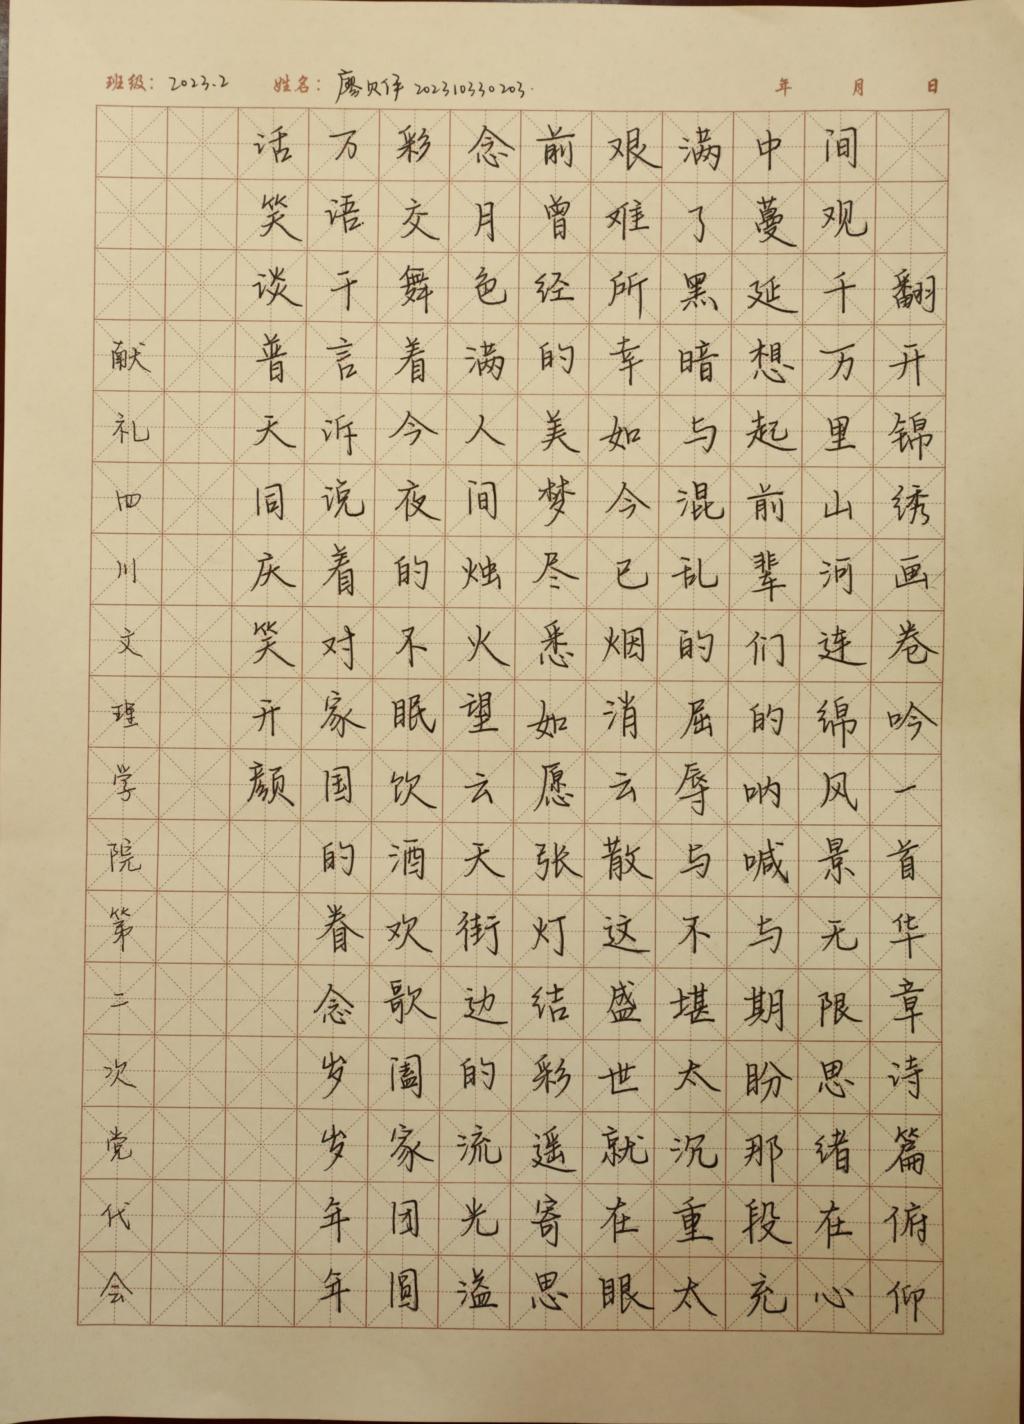 班级：2023.2 姓名：廖贝伊 202310330203. 年 月 日
翻开锦绣画卷吟一首华章诗篇俯仰
间观千万里山河连绵风景无限思绪在心
中蔓延想起前辈们的呐喊与期盼那段充
满了黑暗与混乱的屈辱与不堪太沉重太
艰难所幸如今已烟消云散这盛世就在眼
前曾经的美梦尽悉如愿张灯结彩遥寄思
念月色满人间烛火望云天街边的流光溢
彩交舞着今夜的不眠饮酒欢歌阖家团圆
万语千言诉说着对家国的眷念岁岁年年
话笑谈普天同庆笑开颜
献礼四川文理学院第二次党代会